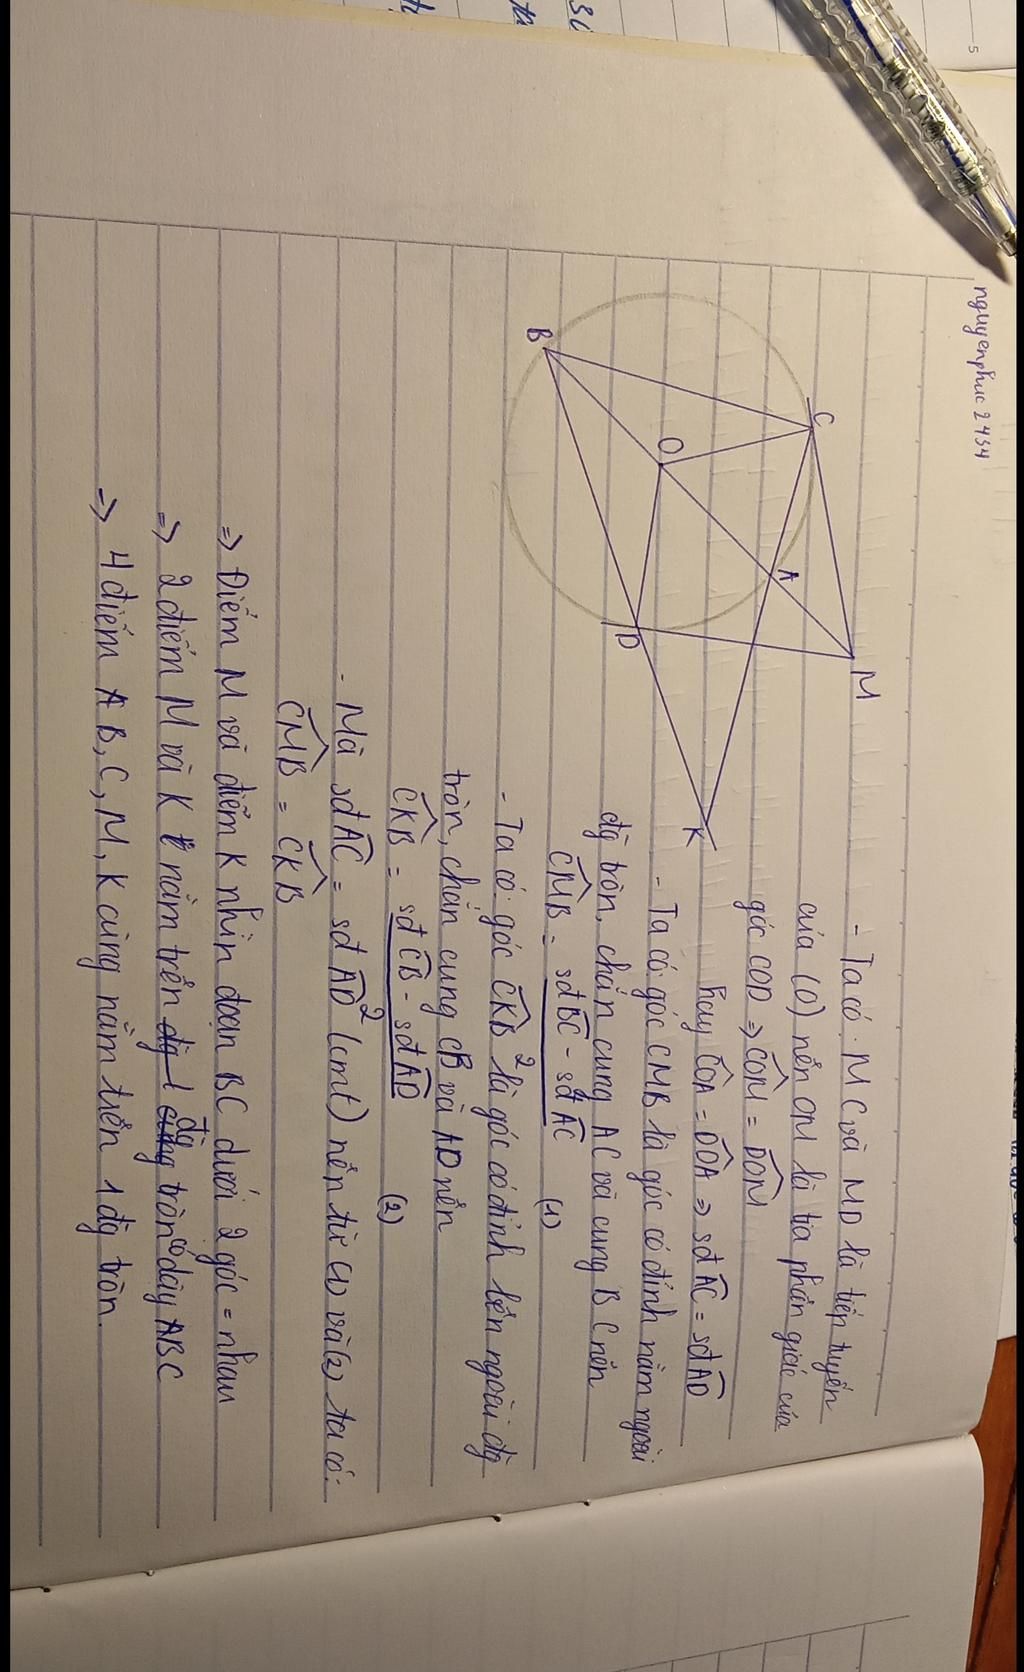 nguyenphuc 2434
C
M
A
O
B
D
K
- Ta có: MC và MD là tiếp tuyến
của (O) nên OM là tia phân giác của
góc COD => COM = DOM
hay COA = DOA => sđ AC = sđ AD
- Ta có góc CMB là góc có đỉnh nằm ngoài
đg tròn, chắn cung AC và cung BC nên
CMB = sđ BC - sđ AC (1)
2
- Ta có: góc CKB là góc có đỉnh bên ngoài đg
tròn, chắn cung CB và AD nên
CKB = sđ CB - sđ AD (2)
2
- Mà sđ AC = sđ AD (cmt) nên từ (1) và (2) ta có:
CMB = CKB
=> Điểm M và điểm K nhìn đoạn BC dưới 2 góc = nhau
=> 2 điểm M và K nằm trên đg tròn có dây ABC
=> 4 điểm A B, C, M, K cùng nằm trên 1 đg tròn.
5